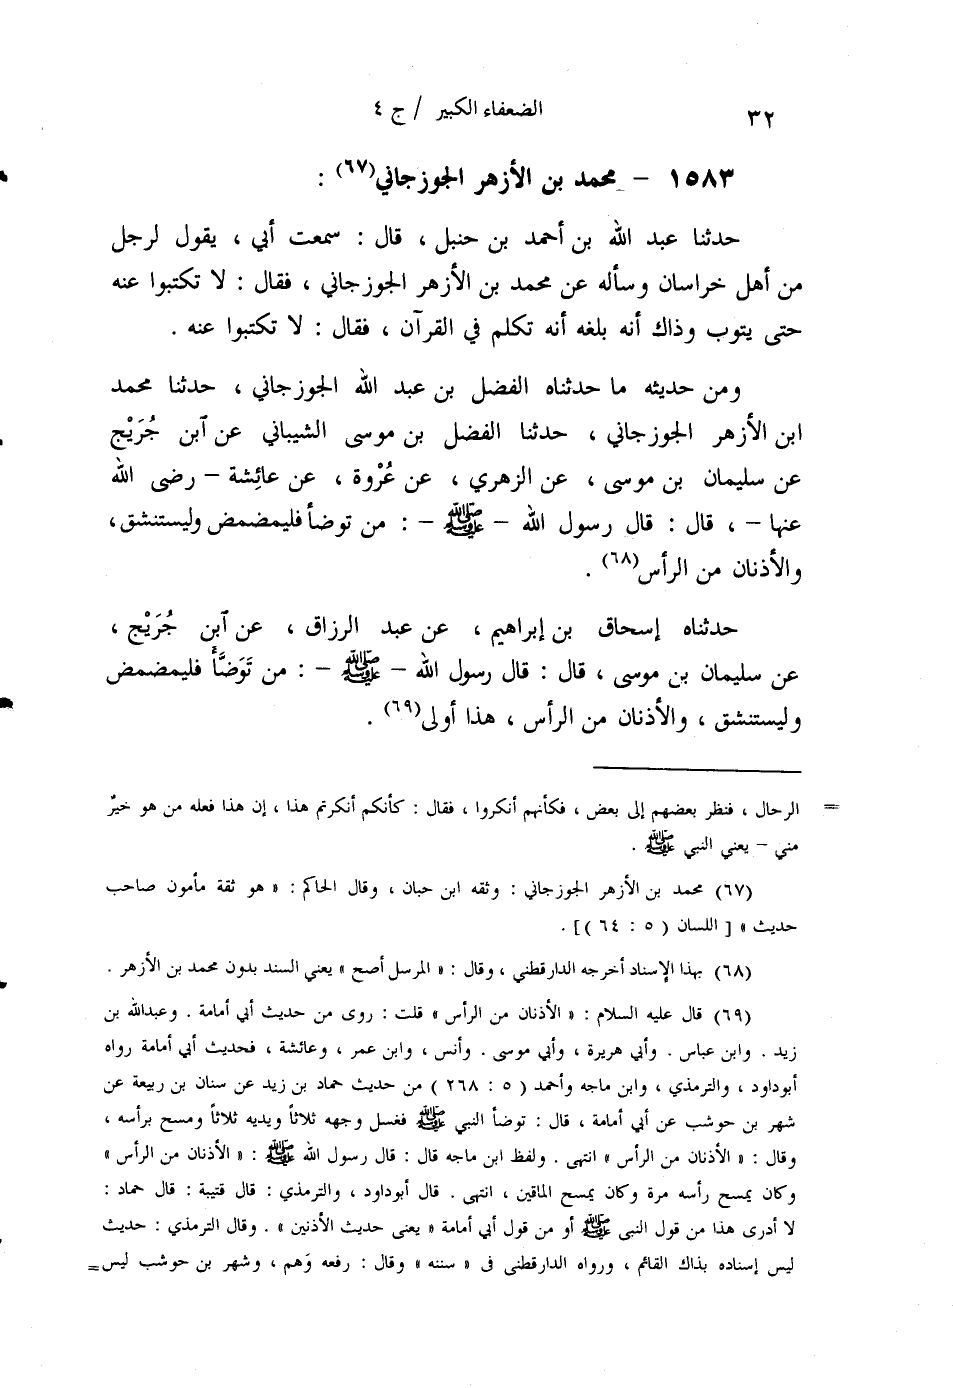 ٣٢
الضعفاء الكبير / ج ٤
١٥٨٣ - محمد بن الأزهر الجوزجاني(٦٧) :
حدثنا عبد الله بن أحمد بن حنبل ، قال : سمعت أبي ، يقول لرجل
من أهل خراسان وسأله عن محمد بن الأزهر الجوزجاني ، فقال : لا تكتبوا عنه
حتى يتوب وذاك أنه بلغه أنه تكلم في القرآن ، فقال : لا تكتبوا عنه .
ومن حديثه ما حدثناه الفضل بن عبد الله الجوزجاني ، حدثنا محمد
ابن الأزهر الجوزجاني ، حدثنا الفضل بن موسى الشيباني عن آبن جُرَيْج
عن سليمان بن موسى ، عن الزهري ، عن عُرْوة ، عن عائِشة - رضى الله
عنها - ، قال : قال رسول الله - ﷺ - : من توضأ فليمضمض وليستنشق ،
والأذنان من الرأس(٦٨) .
حدثناه إسحاق بن إبراهيم ، عن عبد الرزاق ، عن آبن جُرَيْج ،
عن سليمان بن موسى ، قال : قال رسول الله - ﷺ - : من تَوَضَّأَ فليمضمض
وليستنشق ، والأذنان من الرأس ، هذا أولى(٦٩) .
= الرحال ، فنظر بعضهم إلى بعض ، فكأنهم أنكروا ، فقال : كأنكم أنكرتم هذا ، إن هذا فعله من هو خيرٌ
مني - يعني النبي ﷺ .
(٦٧) محمد بن الأزهر الجوزجاني : وثقه ابن حبان ، وقال الحاكم : « هو ثقة مأمون صاحب
حديث » [ اللسان ( ٥ : ٦٤ )] .
(٦٨) بهذا الإسناد أخرجه الدارقطني ، وقال : « المرسل أصح » يعني السند بدون محمد بن الأزهر .
(٦٩) قال عليه السلام : « الأذنان من الرأس » قلت : روى من حديث أبي أمامة . وعبدالله بن
زيد . وابن عباس . وأبي هريرة ، وأبي موسى . وأنس ، وابن عمر ، وعائشة ، فحديث أبي أمامة رواه
أبوداود ، والترمذي ، وابن ماجه وأحمد ( ٥ : ٢٦٨ ) من حديث حماد بن زيد عن سنان بن ربيعة عن
شهر بن حوشب عن أبي أمامة ، قال : توضأ النبي ﷺ فغسل وجهه ثلاثاً ويديه ثلاثاً ومسح برأسه ،
وقال : « الأذنان من الرأس » انتهى . ولفظ ابن ماجه قال : قال رسول الله ﷺ : « الأذنان من الرأس »
وكان يمسح رأسه مرة وكان يمسح الماقين ، انتهى . قال أبوداود ، والترمذي : قال قتيبة : قال حماد :
لا أدرى هذا من قول النبى ﷺ أو من قول أبي أمامة « يعنى حديث الأذنين » . وقال الترمذي : حديث
ليس إسناده بذاك القائم ، ورواه الدارقطنى فى « سننه » وقال : رفعه وَهم ، وشهر بن حوشب ليس =